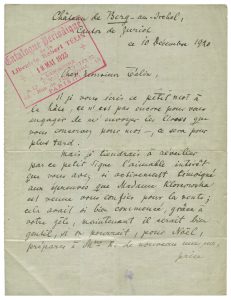 Château de Berg-au-Irchel,
Canton de Zurich
ce 10 Décembre 1920
Catalogue
Librairie
18 MAI 1925
PARIS
Cher Monsieur
si je vous écris ce petit mot à
la hâte, ce n'est pas encore pour vous
engager de m'envoyer les livres que
vous conservez pour moi -, ce sera pour
plus tard.
Mais je tiendrais à réveiller
par ce petit signe l'aimable intérêt
que vous avez si activement témoigné
aux épreuves que Madame
est venue vous confier pour la vente;
cela avait si bien commencé, grâce à
votre zèle, maintenant il serait bien
gentil, si on pourrait, pour Noël,
préparer à Mme K. de nouveau une